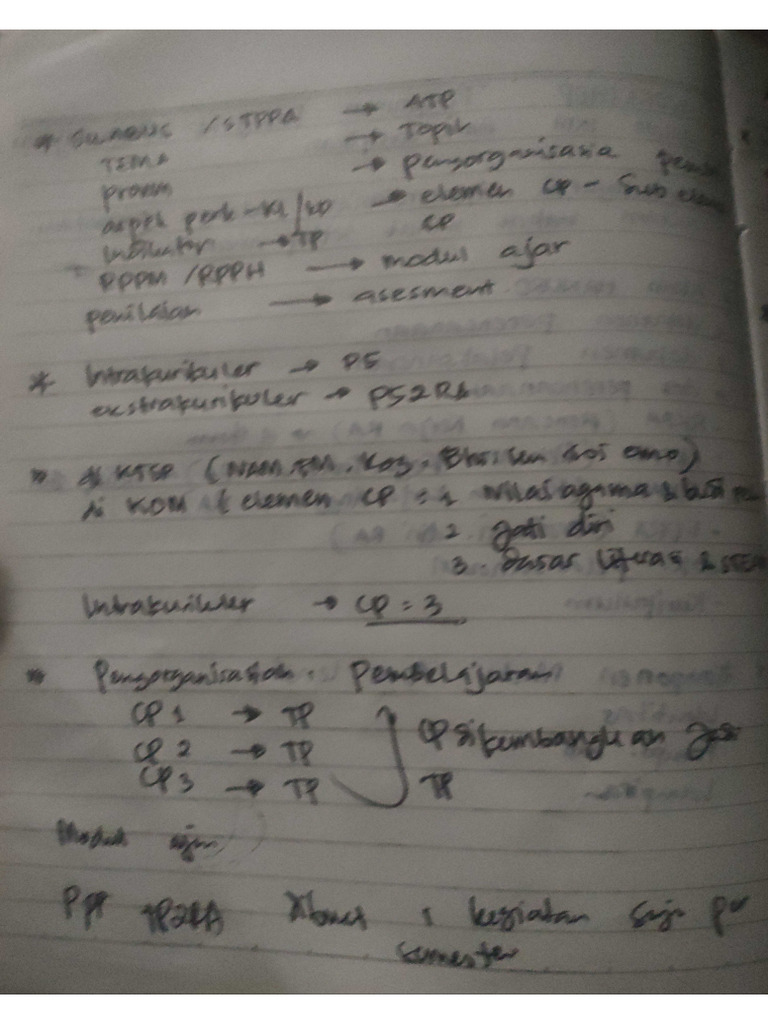 * /STPPA → ATP
TEMA → Topik
promm → pengorganisasia
aspek perk - KI/KD → elemen CP - Sub elem
Indikator → TP CP
RPPM /RPPH → modul ajar
penilaian → asesment
* Intrakurikuler → P5
ekstrakurikuler → P52RA
di KTSP (NAM, FM, Kog, Bhs, Sen Sos emo)
di KOM ( elemen CP : 1 Nilai agama & budi
2. Jati diri
3. Dasar Literasi & STEA
Intrakurikuler → CP = 3
* Pengorganisasian Pembelajaran
CP 1 → TP
CP 2 → TP CP dikembangkan
CP 3 → TP TP
Modul ajar
1 kegiatan saja per
semester